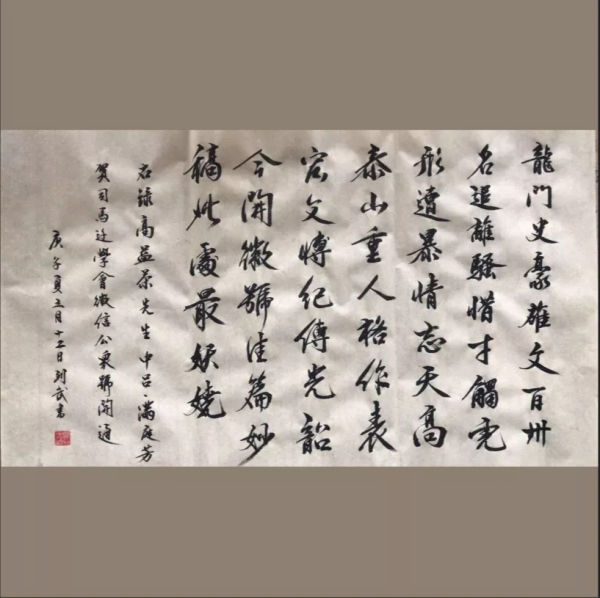 龍門史豪雄文百卅
名逞離騷惜才觸電
形遭暴情志天高
泰山重人格作表
宏文博紀傳光韶
今開徽號佳篇妙
稿此處最妖嬈
右錄高益荣先生中吕·满庭芳
贺司馬迁學會微信公衆號開通
庚子夏五月十二日刘武書